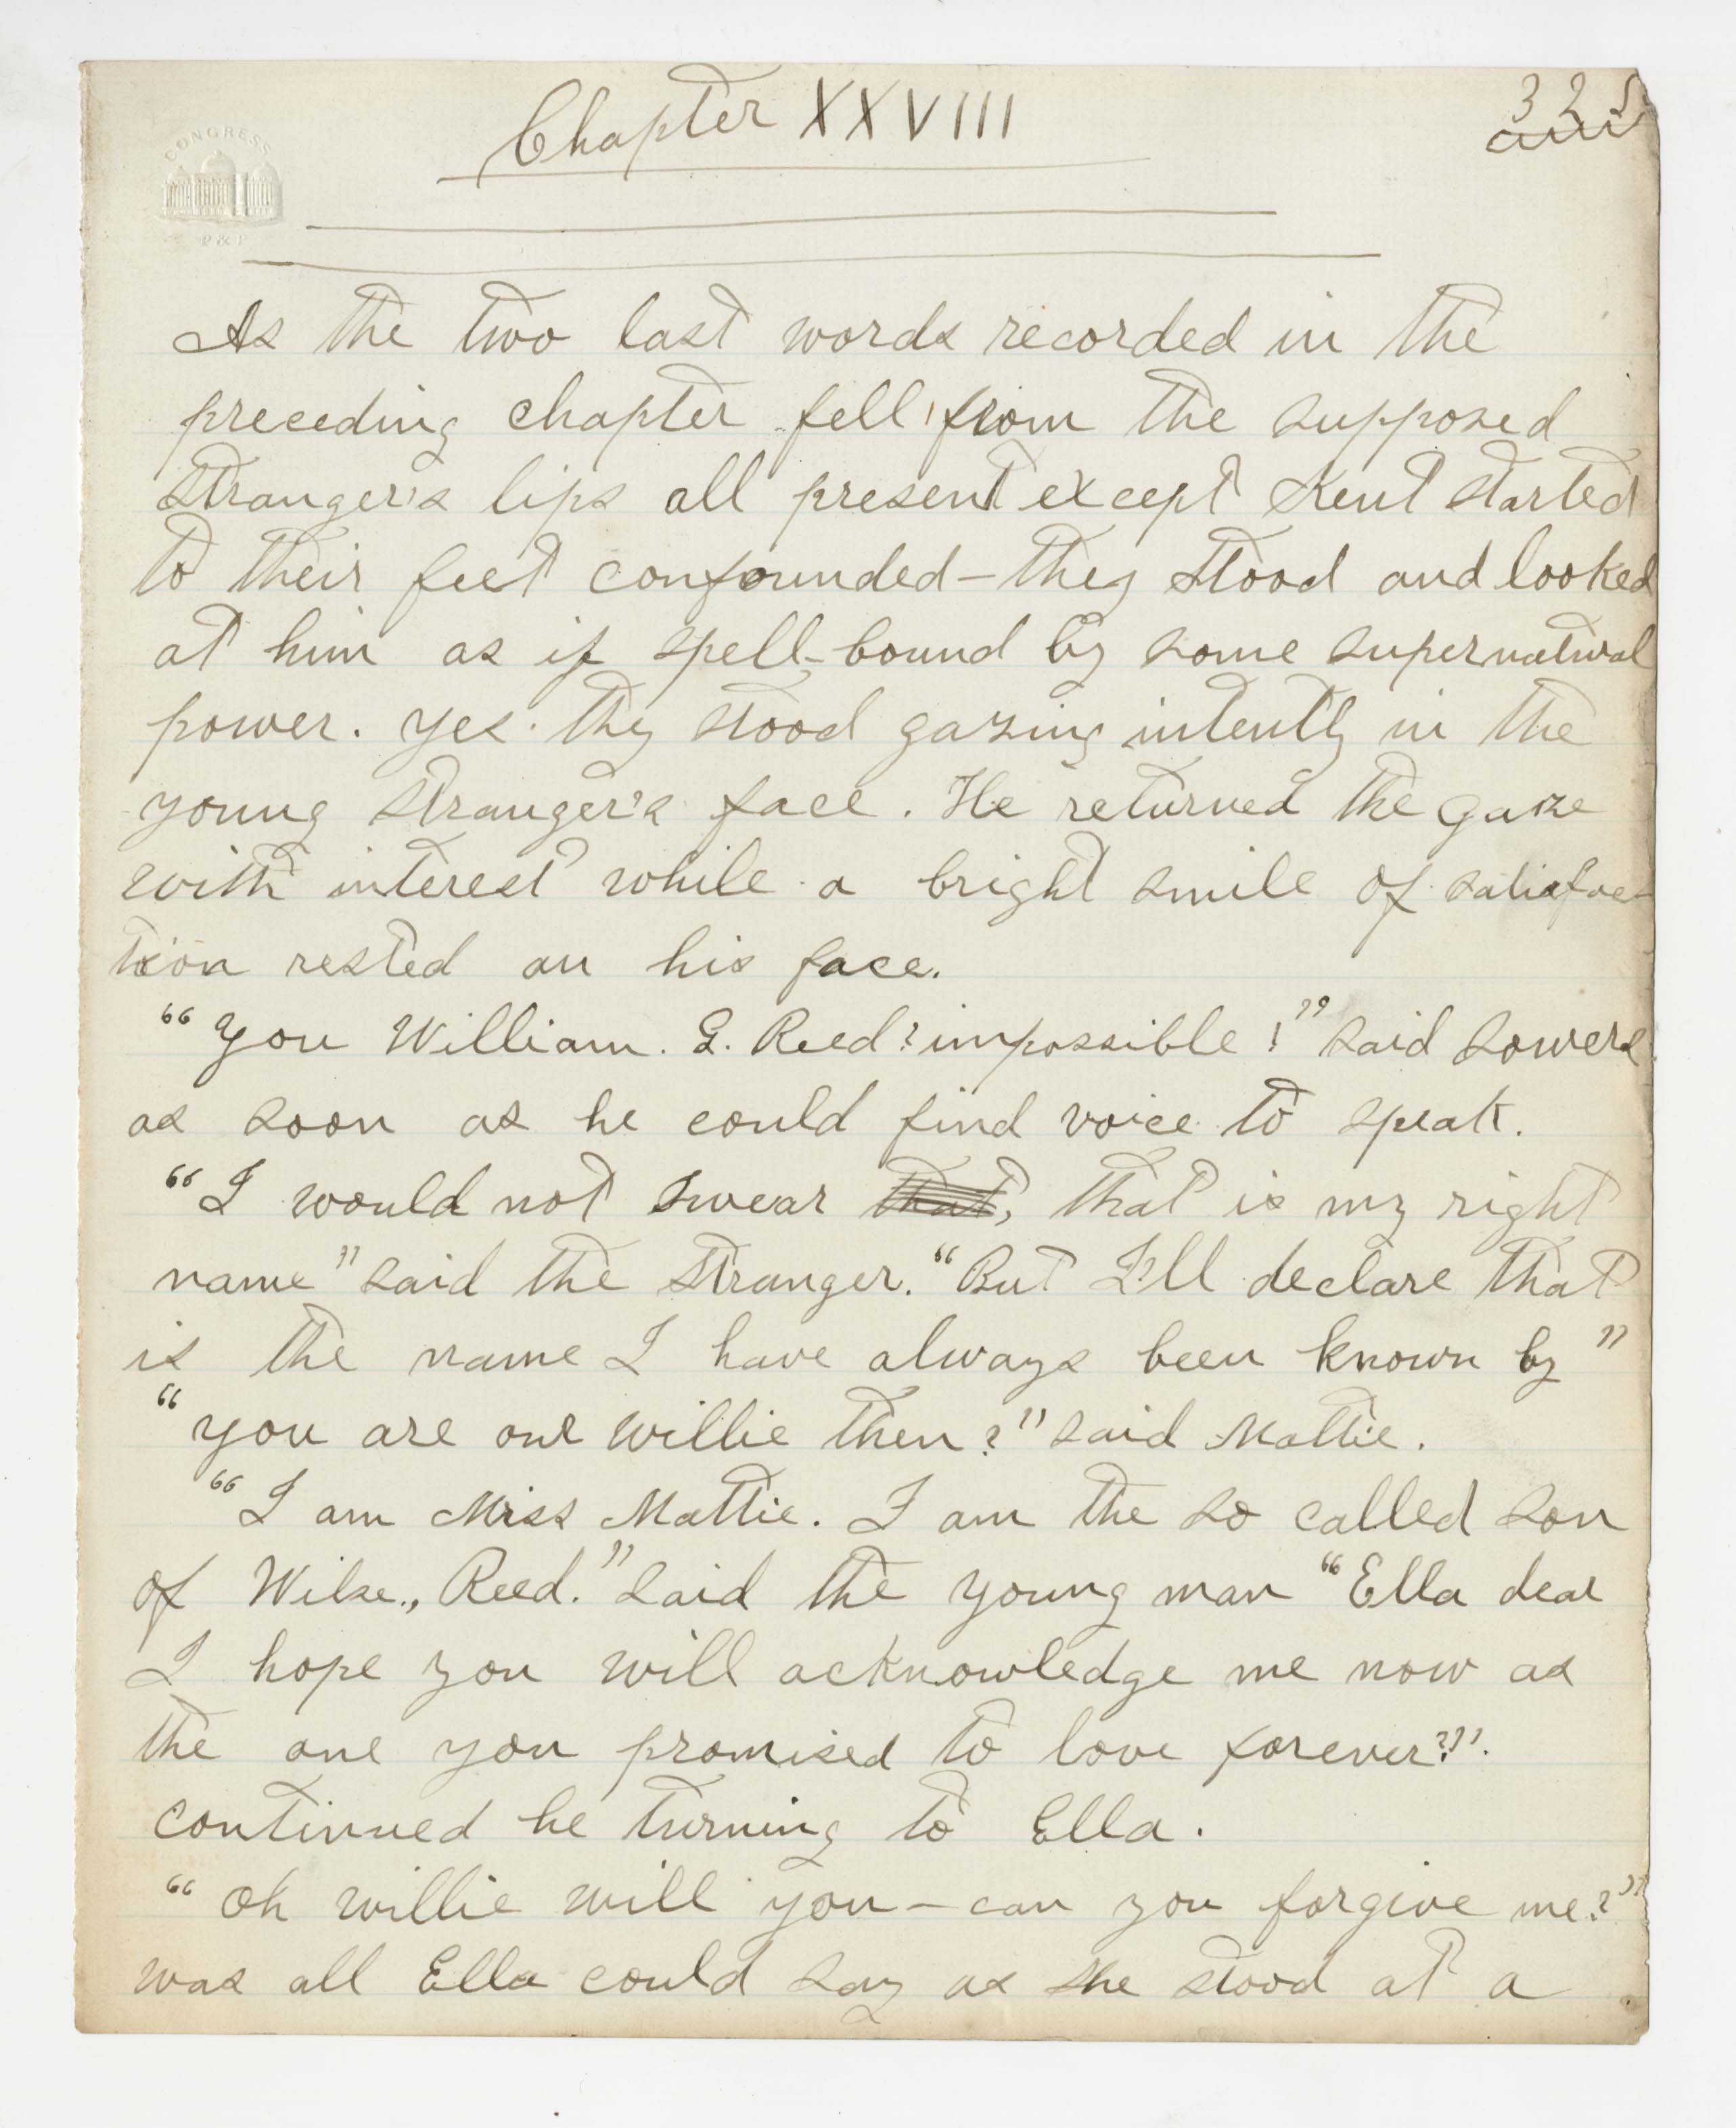 Chapter XXVIII
325
CONGRESS
P & P
As the two last words recorded in the
preceding chapter fell from the supposed
stranger's lips all present except Kent started
to their feet confounded—they stood and looked
at him as if spell-bound by some supernatural
power. Yes. they stood gazing intently in the
young stranger's face. He returned the gaze
with interest while a bright smile of satisfac-
tion rested on his face.
"You William. G. Reed? impossible!" said Sowers
as soon as he could find voice to speak.
"I would not swear that, that is my right
name" said the stranger. "But I'll declare that
is the name I have always been known by"
"You are our Willie then?" said Mattie.
"I am Miss Mattie. I am the so called son
of Wilse., Reed." said the young man "Ella dear
I hope you will acknowledge me now as
the one you promised to love forever?".
continued he turning to Ella.
"Oh Willie will you—can you forgive me?"
was all Ella could say as she stood at a